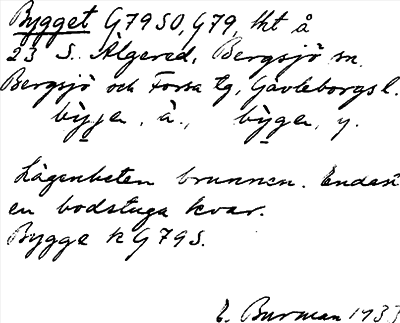 Bygget G79SO, G79, tkt å
23 S. Älgered, Bergsjö sn.
Bergsjö och Forsa tg, Gävleborgs l.
byggen, ä., bygen, y.
Lägenheten brunnen. Endast
en bodstuga kvar.
Bygge k G79S.
E. Burman 1933